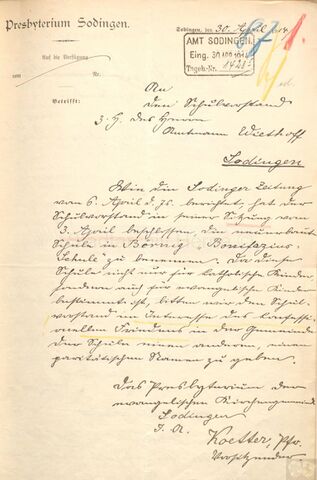 Presbyterium Sodingen.
Sodingen, den 30. April 1914
Auf die Verfügung
vom Nr.
Betrifft:
AMT SODINGEN
Eing. 30 APR 191
Tageb.-Nr. 8428
An
den Schulvorstand
z. H. des Herrn
Amtmann Wiethoff
Sodingen
Wie die Sodinger Zeitung
vom 6. April d. Js. berichtet, hat der
Schulvorstand in seiner Sitzung vom
3. April beschlossen, die neuerbaute
Schule in Börnig „Bonifazius-
Schule" zu benennen. Da diese
Schule nicht nur für katholische Kinder,
sondern auch für evangelische Kinder
bestimmt ist, bitten wir den Schul-
vorstand im Interesse des konfessi-
onellen Friedens in der Gemeinde
der Schule einen anderen, einen
paritätischen Namen zu geben.
Das Presbyterium der
evangelischen Kirchengemeinde
Sodingen
I. A.
Koetter, Pfr.
Vorsitzender